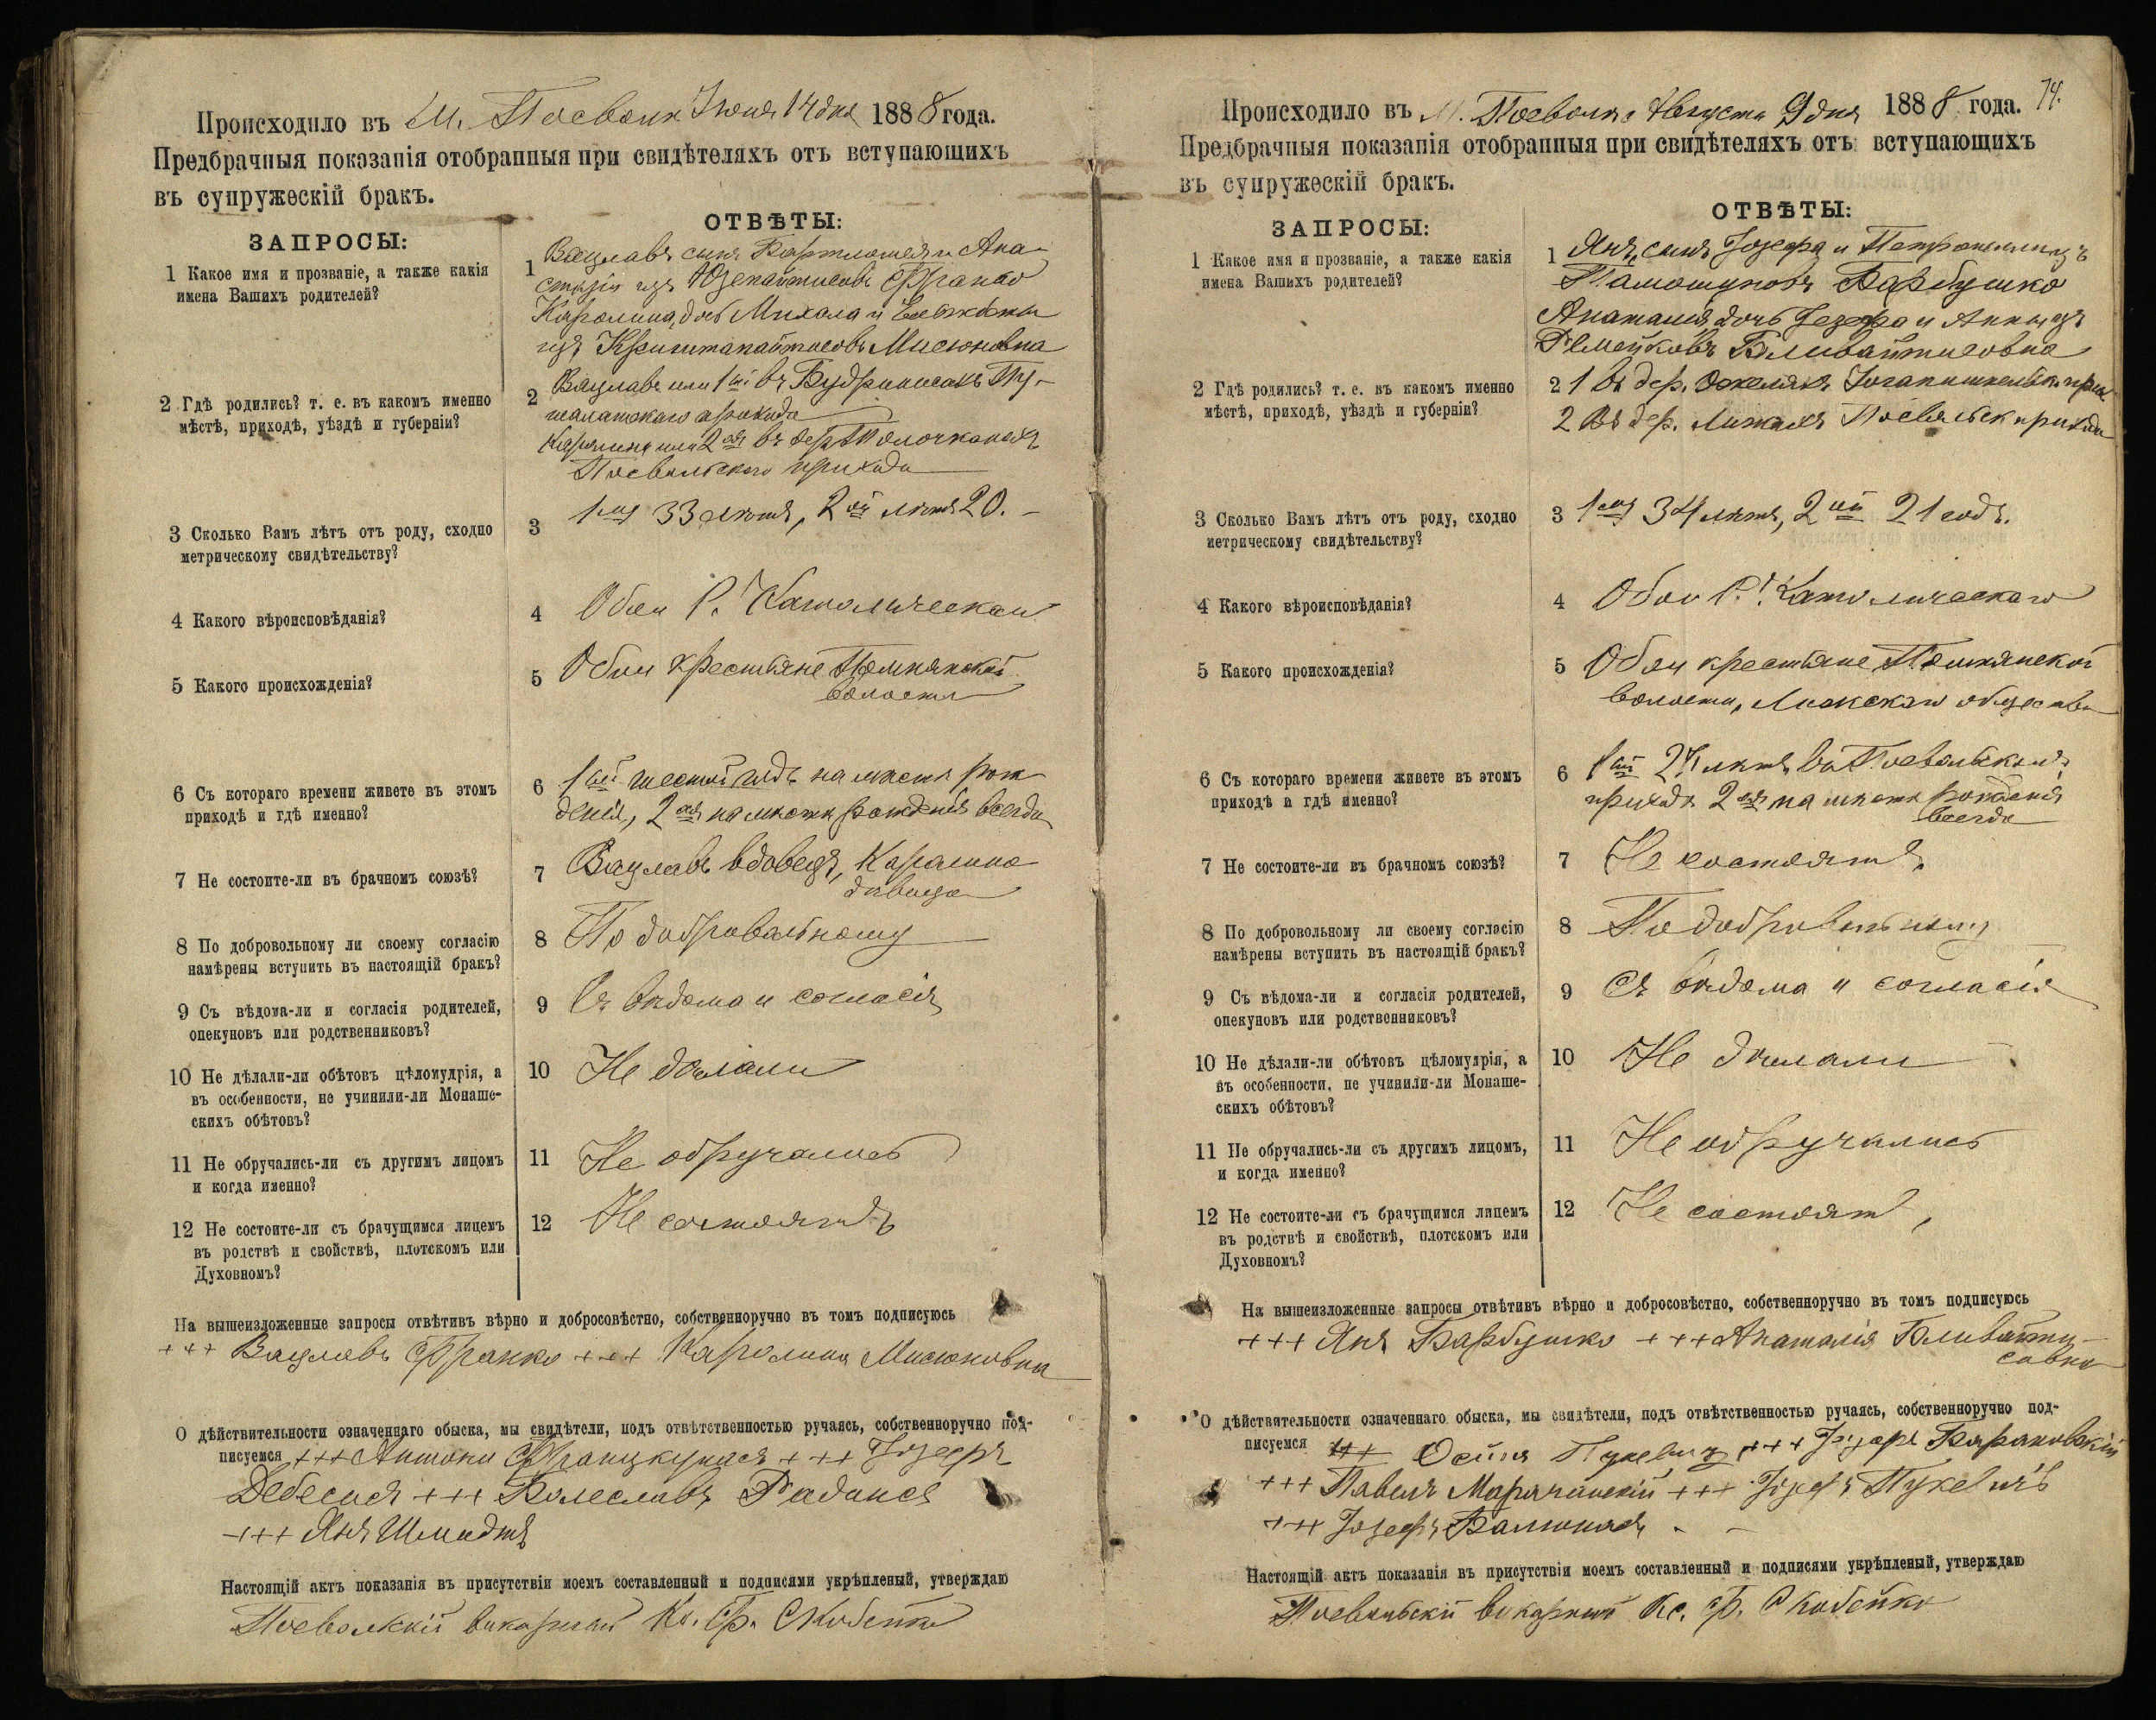 Происходило въ М. Посволи Іюня 14 дня 1888 года.
Предбрачныя показанія отобранныя при свидѣтеляхъ отъ вступающихъ
въ супружескій бракъ.
ЗАПРОСЫ:
ОТВѢТЫ:
1 Какое имя и прозваніе, а также какія
имена Вашихъ родителей?
1 Вацлавъ сынъ Бартломея и Ана-
стазіи изъ Франко
Каролина, дочь Михала и
изъ Мисюновна
2 Гдѣ родились? т. е. въ какомъ именно
мѣстѣ, приходѣ, уѣздѣ и губерніи?
2 Вацлавъ или 1ый въ Пу-
шалатскаго прихода
Каролина или 2ая въ дер.
Посвольскаго прихода
3 Сколько Вамъ лѣтъ отъ роду, сходно
метрическому свидѣтельству?
3 1му 33 лѣтъ, 2ой лѣтъ 20. –
4 Какого вѣроисповѣданія?
4 Обои Р. Католическаго
5 Какого происхожденія?
5 Обои крестьяне
волости
6 Съ котораго времени живете въ этомъ
приходѣ и гдѣ именно?
6 1ый шестой годъ на мѣстѣ рож-
денія, 2ая на мѣстѣ рожденія всегда
7 Не состоите-ли въ брачномъ союзѣ?
7 Вацлавъ вдовецъ, Каролина
дѣвица
8 По добровольному ли своему согласію
намѣрены вступить въ настоящій бракъ?
8 По добровольному
9 Съ вѣдома-ли и согласія родителей,
опекуновъ или родственниковъ?
9 Съ вѣдома и согласія
10 Не дѣлали-ли обѣтовъ цѣломудрія, а
въ особенности, не учинили-ли Монаше-
скихъ обѣтовъ?
10 Не дѣлали
11 Не обручались-ли съ другимъ лицомъ
и когда именно?
11 Не обручались
12 Не состоите-ли съ брачущимся лицемъ
въ родствѣ и свойствѣ, плотскомъ или
Духовномъ?
12 Не состоятъ
На вышеизложенные запросы отвѣтивъ вѣрно и добросовѣстно, собственноручно въ томъ подписуюсь
+++ Вацлавъ Франко +++ Каролина Мисюновна
О дѣйствительности означеннаго обыска, мы свидѣтели, подъ отвѣтственностью ручаясь, собственноручно под-
писуемся +++ Антони Францкунасъ +++ Іозефъ
Дебесисъ +++ Болеславъ Радинсъ
+++ Янъ Шмидтъ
Настоящій актъ показанія въ присутствіи моемъ составленный и подписями укрѣпленый, утверждаю
Посвольскій викарный Кс. Фр. Скобейко
74.
Происходило въ М. Посволи Августа 9 дня 1888 года.
Предбрачныя показанія отобранныя при свидѣтеляхъ отъ вступающихъ
въ супружескій бракъ.
ЗАПРОСЫ:
ОТВѢТЫ:
1 Какое имя и прозваніе, а также какія
имена Вашихъ родителей?
1 Янъ, сынъ Іозефа и Петронеллы изъ
Барбушко
Анаталія дочь Іозефа и Анны изъ
2 Гдѣ родились? т. е. въ какомъ именно
мѣстѣ, приходѣ, уѣздѣ и губерніи?
2 1 въ дер.
2 Въ дер. Посвольск прихода
3 Сколько Вамъ лѣтъ отъ роду, сходно
метрическому свидѣтельству?
3 1му 34 лѣтъ, 2ой 21 годъ.
4 Какого вѣроисповѣданія?
4 Обои Р. Католическаго
5 Какого происхожденія?
5 Обои крестьяне
волости, общества
6 Съ котораго времени живете въ этомъ
приходѣ и гдѣ именно?
6 1ый лѣтъ въ Посвольскомъ
приходѣ 2ая на мѣстѣ рожденія
всегда
7 Не состоите-ли въ брачномъ союзѣ?
7 Не состоятъ
8 По добровольному ли своему согласію
намѣрены вступить въ настоящій бракъ?
8 По добровольному
9 Съ вѣдома-ли и согласія родителей,
опекуновъ или родственниковъ?
9 Съ вѣдома и согласія
10 Не дѣлали-ли обѣтовъ цѣломудрія, а
въ особенности, не учинили-ли Монаше-
скихъ обѣтовъ?
10 Не дѣлали
11 Не обручались-ли съ другимъ лицомъ,
и когда именно?
11 Не обручались
12 Не состоите-ли съ брачущимся лицемъ
въ родствѣ и свойствѣ, плотскомъ или
Духовномъ?
12 Не состоятъ,
На вышеизложенные запросы отвѣтивъ вѣрно и добросовѣстно, собственноручно въ томъ подписуюсь
+++ Янъ Барбушко +++ Анаталія
О дѣйствительности означеннаго обыска, мы свидѣтели, подъ отвѣтственностью ручаясь, собственноручно под-
писуемся +++ Осипъ Пукевичъ +++ Іозефъ Барановскій
+++ Павелъ +++ Іозефъ Пукевичъ
+++ Іозефъ Валюнасъ
Настоящій актъ показанія въ присутствіи моемъ составленный и подписями укрѣпленый, утверждаю
Посвольскій викарный Кс. Фр. Скобейко